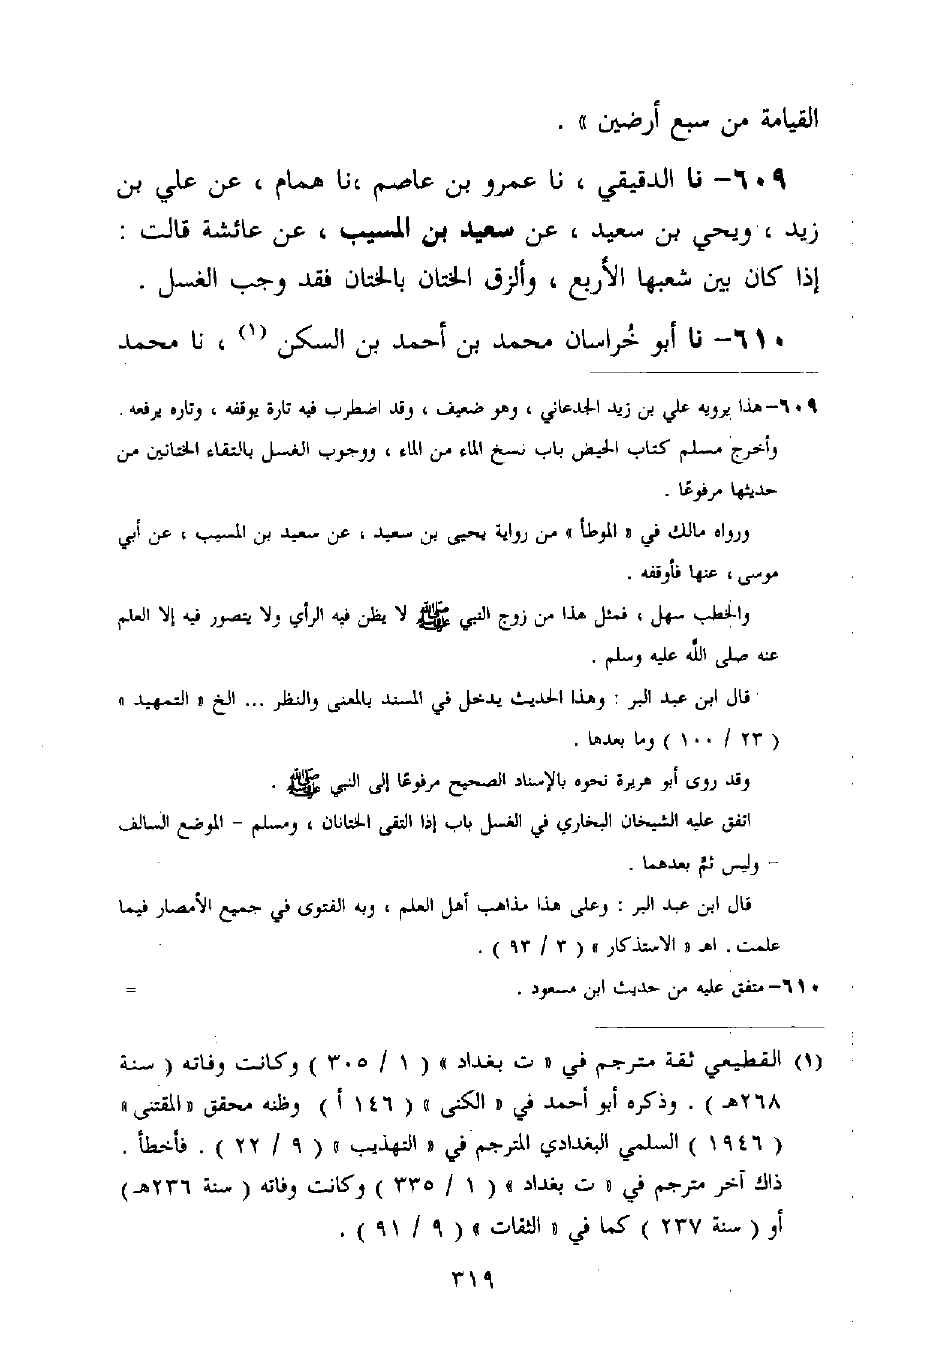 القيامة من سبع أرضين » .
٦٠٩- نا الدقيقي ، نا عمرو بن عاصم ،نا همام ، عن علي بن
زيد ، ويحي بن سعيد ، عن سعيد بن المسيب ، عن عائشة قالت :
إذا كان بين شعبها الأربع ، وألزق الختان بالختان فقد وجب الغسل .
٦١٠- نا أبو خُراسان محمد بن أحمد بن السكن (١) ، نا محمد
٦٠٩- هذا يرويه علي بن زيد الجدعاني ، وهو ضعيف ، وقد اضطرب فيه تارة يوقفه ، وتاره يرفعه .
وأخرج مسلم كتاب الحيض باب نسخ الماء من الماء ، ووجوب الغسل بالتقاء الختانين من
حديثها مرفوعًا .
ورواه مالك في « الموطأ » من رواية يحيى بن سعيد ، عن سعيد بن المسيب ، عن أبي
موسى ، عنها فأوقفه .
والخطب سهل ، فمثل هذا من زوج النبي ﷺ لا يظن فيه الرأي ولا يتصور فيه إلا العلم
عنه صلى اللَّه عليه وسلم .
قال ابن عبد البر : وهذا الحديث يدخل في المسند بالمعنى والنظر ... الخ « التمهيد »
( ٢٣ / ١٠٠ ) وما بعدها .
وقد روى أبو هريرة نحوه بالإسناد الصحيح مرفوعًا إلى النبي ﷺ .
اتفق عليه الشيخان البخاري في الغسل باب إذا التقى الختانان ، ومسلم – الموضع السالف
– وليس ثمَّ بعدهما .
قال ابن عبد البر : وعلى هذا مذاهب أهل العلم ، وبه الفتوى في جميع الأمصار فيما
علمت . اهـ « الاستذكار » ( ٣ / ٩٣ ) .
٦١٠- متفق عليه من حديث ابن مسعود . =
(١) القطيعي ثقة مترجم في « ت بغداد » ( ١ / ٣٠٥ ) وكانت وفاته ( سنة
٢٦٨هـ ) . وذكره أبو أحمد في « الكنى » ( ١٤٦ أ ) وظنه محقق «المقتنى»
( ١٩٤٦ ) السلمي البغدادي المترجم في « التهذيب » ( ٩ / ٢٢ ) . فأخطأ .
ذاك آخر مترجم في « ت بغداد » ( ١ / ٣٣٥ ) وكانت وفاته ( سنة ٢٣٦هـ)
أو ( سنة ٢٣٧ ) كما في « الثقات » ( ٩ / ٩١ ) .
٣١٩